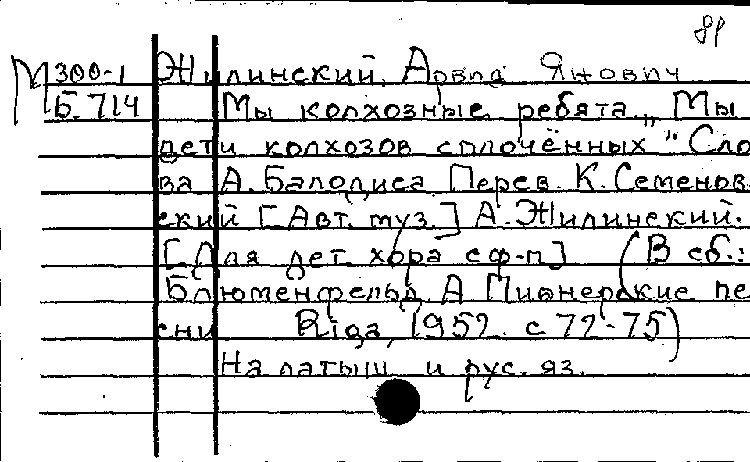 81
М 300-1 Жилинский, Арвид Янович
Б. 714 Мы колхозные ребята „Мы
дети колхозов сплочённых" Сло
ва А. Балодиса Перев. К. Семенов
ский [Авт. муз.] А. Жилинский.
[Для дет. хора с ф-п] (В сб.:
Блюменфельд А Пионерские пе
сни Rīga, 1952. с 72-75)
На латыш и рус. яз.